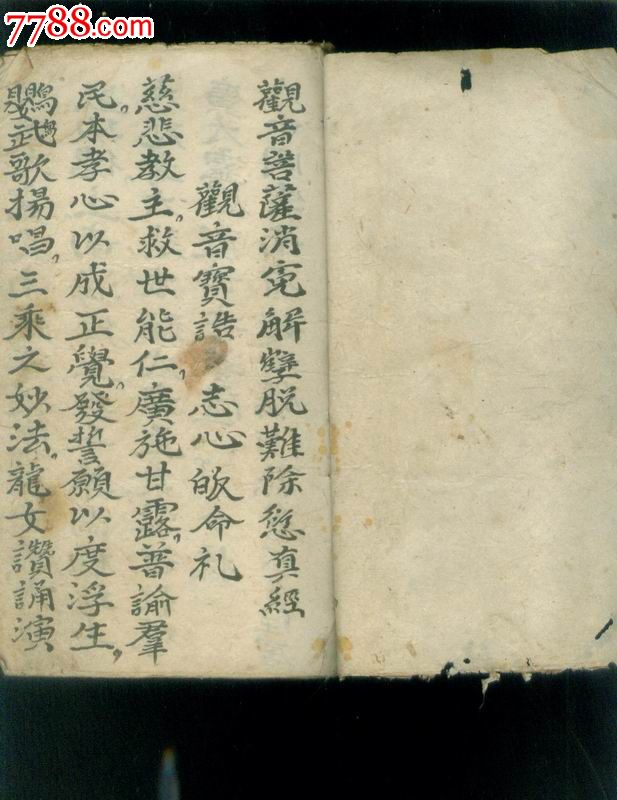 7788.com
觀音菩薩消寃解孽脱難除愆真經
觀音寶誥 志心皈命礼
慈悲教主，救世能仁，廣施甘露，普諭羣
民，本孝心以成正覺，發誓願以度浮生，
鸚鵡歌揚唱，三乘之妙法，龍女讚誦演